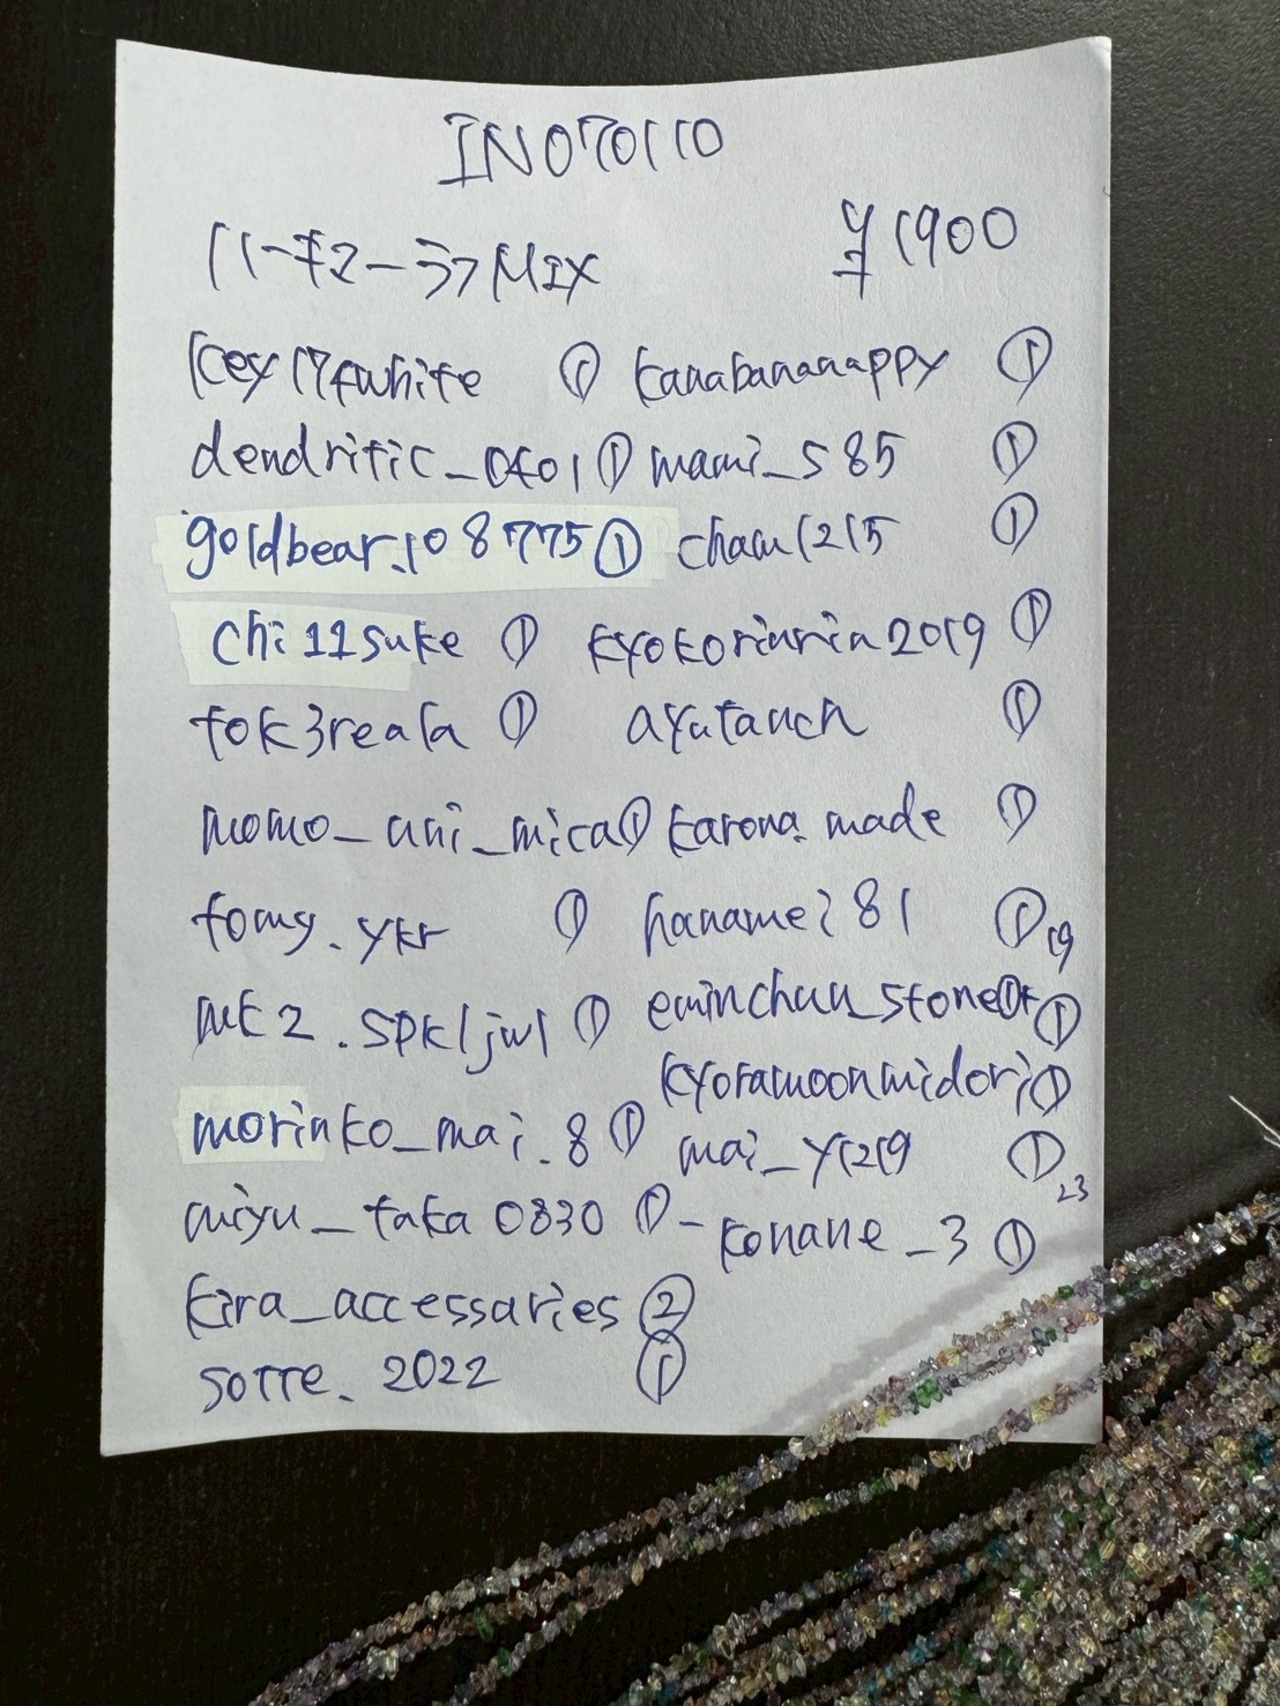 IN070110
ハーキマーラフMIX ¥1900
key174white ① kanabananappy ①
dendritic_0401 ① mami_s85 ①
goldbear.108775 ① cham1215 ①
chi11suke ① kyokorinrin2019 ①
tok3reala ① ayutauch ①
momo_uni_mica ① karona.made ①
tomy.ykr ① hanamei81 ① 19
mk2.spkljwl ① eminchun_stone ①
kyoramoonmidori ①
morinko_mai.8 ① mai_y1219 ① 23
miyu_taka0830 ① - konane_3 ①
kira_accessaries ②
sorre.2022 ①